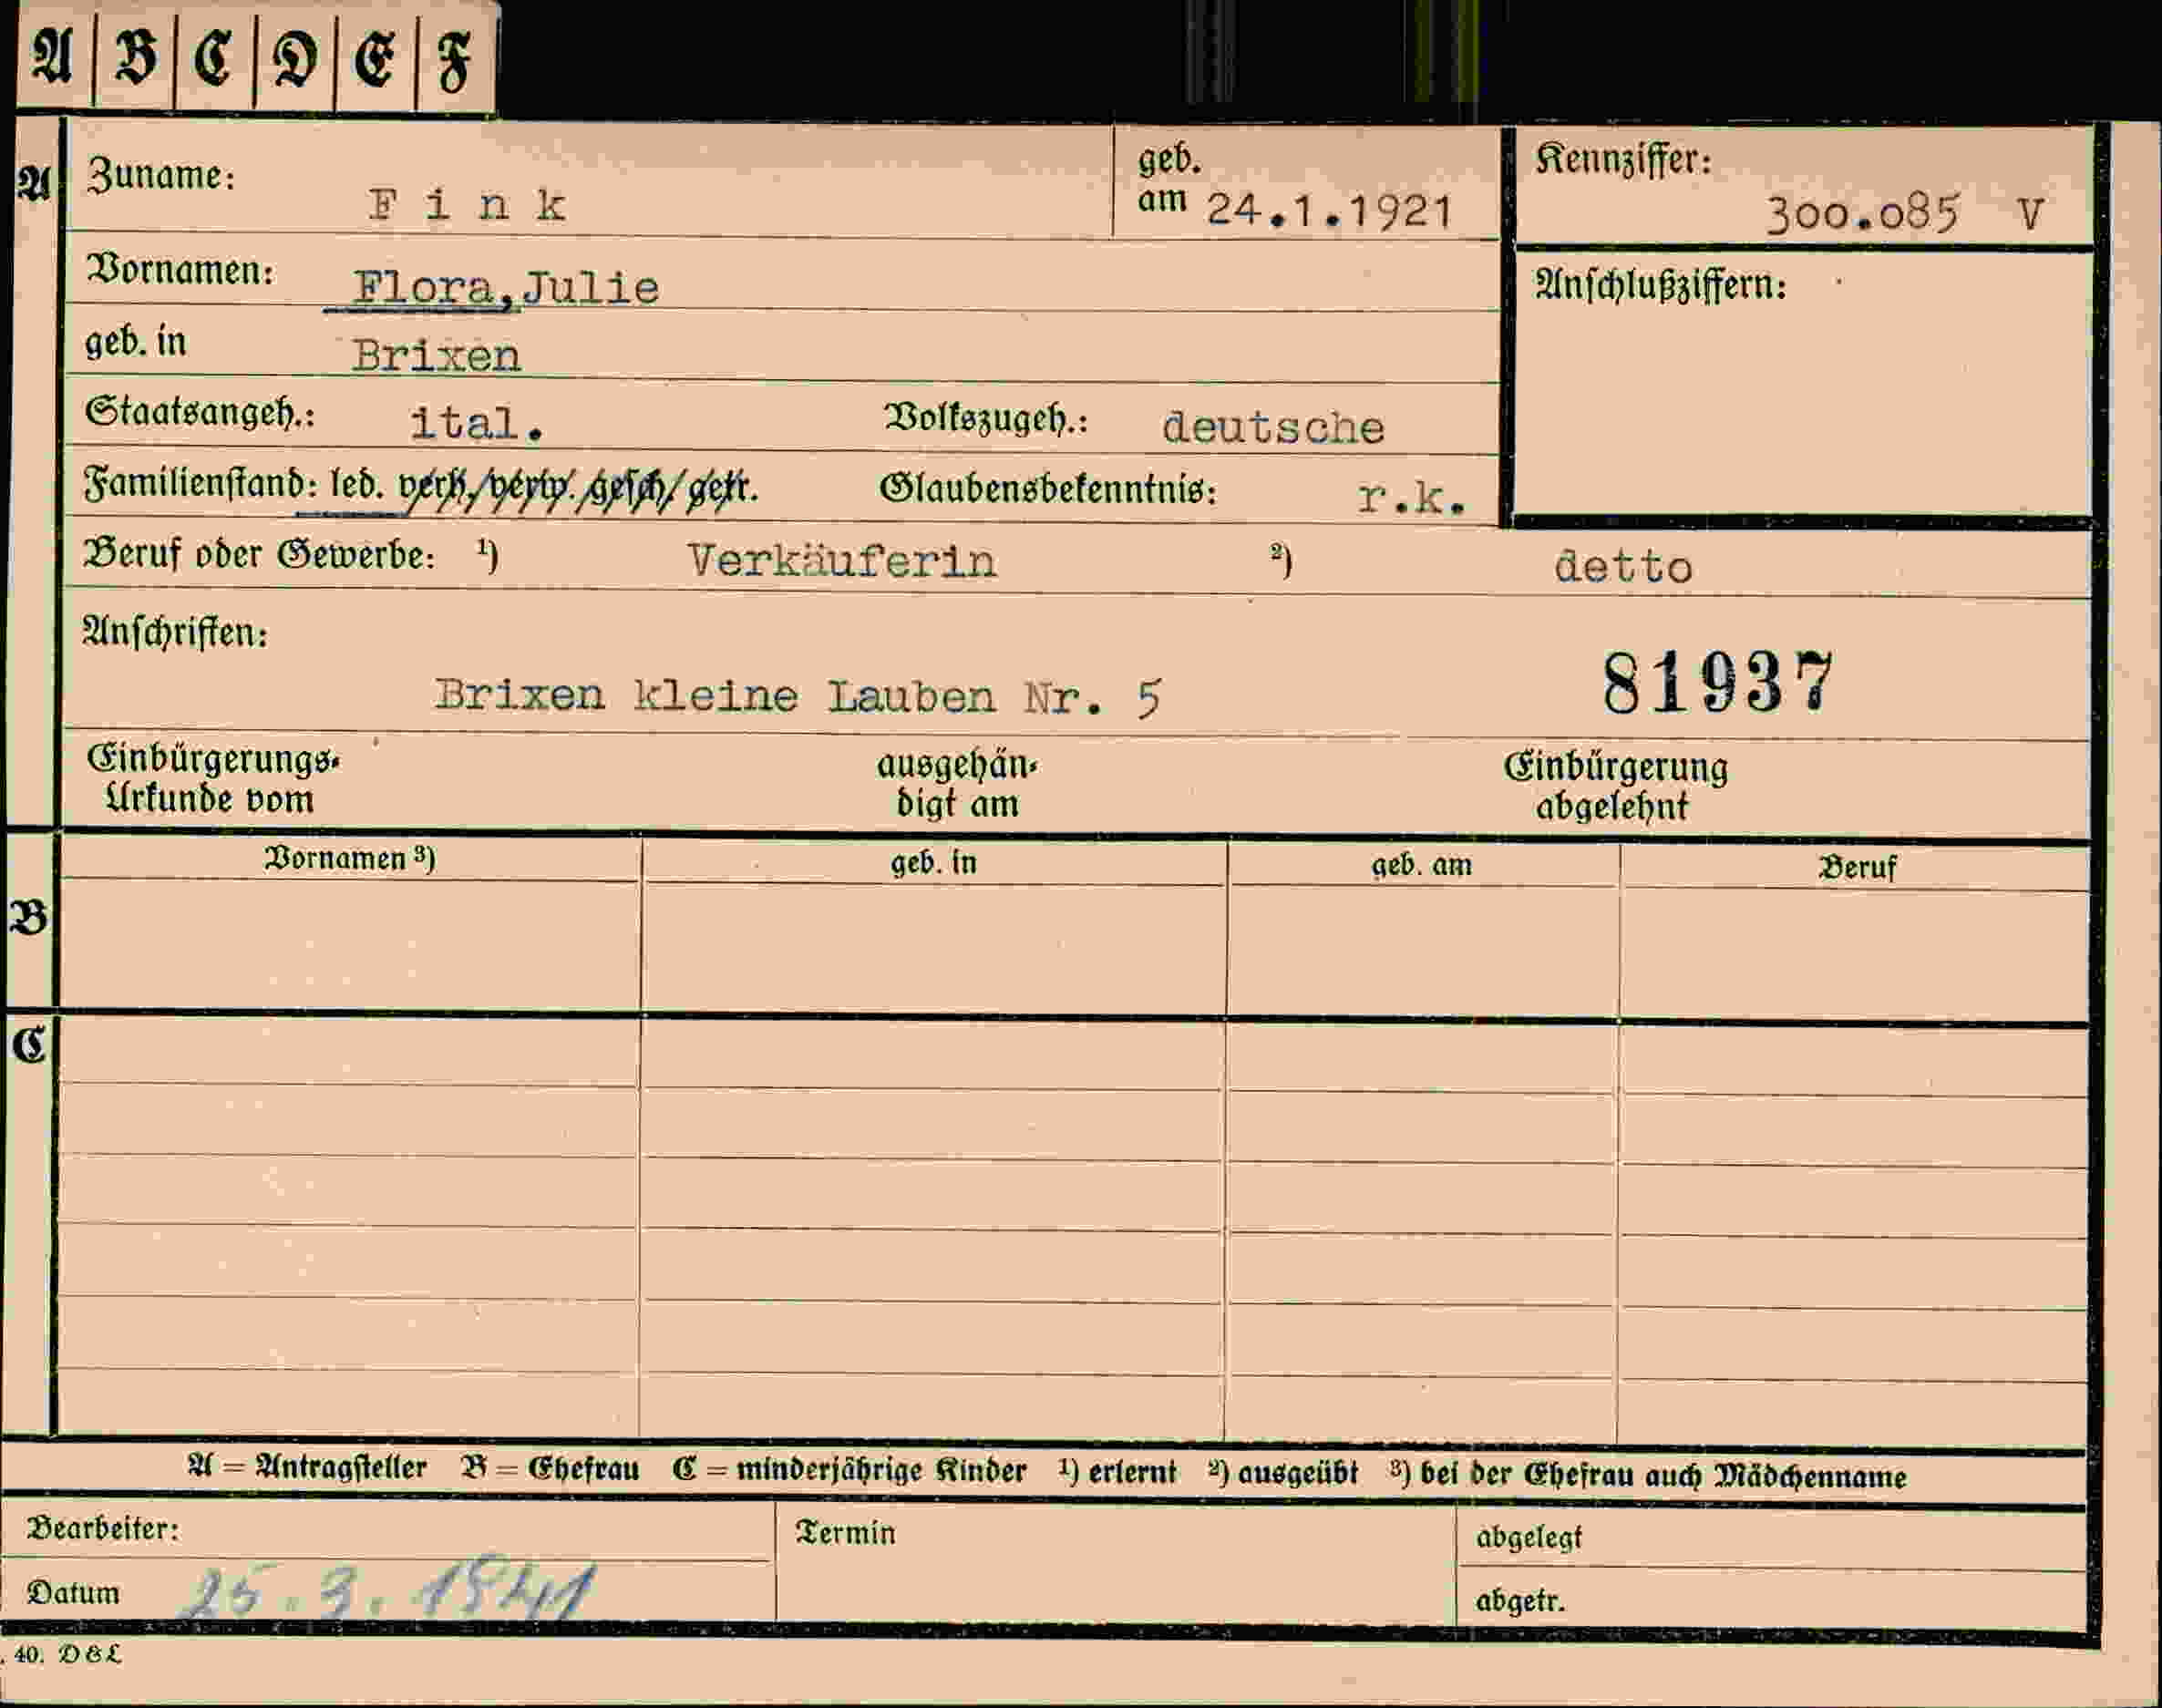 A B C D E F
A Zuname: Fink geb. am 24.1.1921 Kennziffer: 300.085 V
Vornamen: Flora, Julie Anschlußziffern:
geb. in Brixen
Staatsangeh.: ital. Volkszugeh.: deutsche
Familienstand: led. verh./verw./gesch/getr. Glaubensbekenntnis: r.k.
Beruf oder Gewerbe: ¹) Verkäuferin ²) detto
Anschriften:
Brixen kleine Lauben Nr. 5 81937
Einbürgerungs- ausgehän- Einbürgerung
Urkunde vom digt am abgelehnt
Vornamen ³) geb. in geb. am Beruf
B
C
A = Antragsteller B = Ehefrau C = minderjährige Kinder ¹) erlernt ²) ausgeübt ³) bei der Ehefrau auch Mädchenname
Bearbeiter: Termin abgelegt
Datum 25.3.1941 abgetr.
. 40. D & L